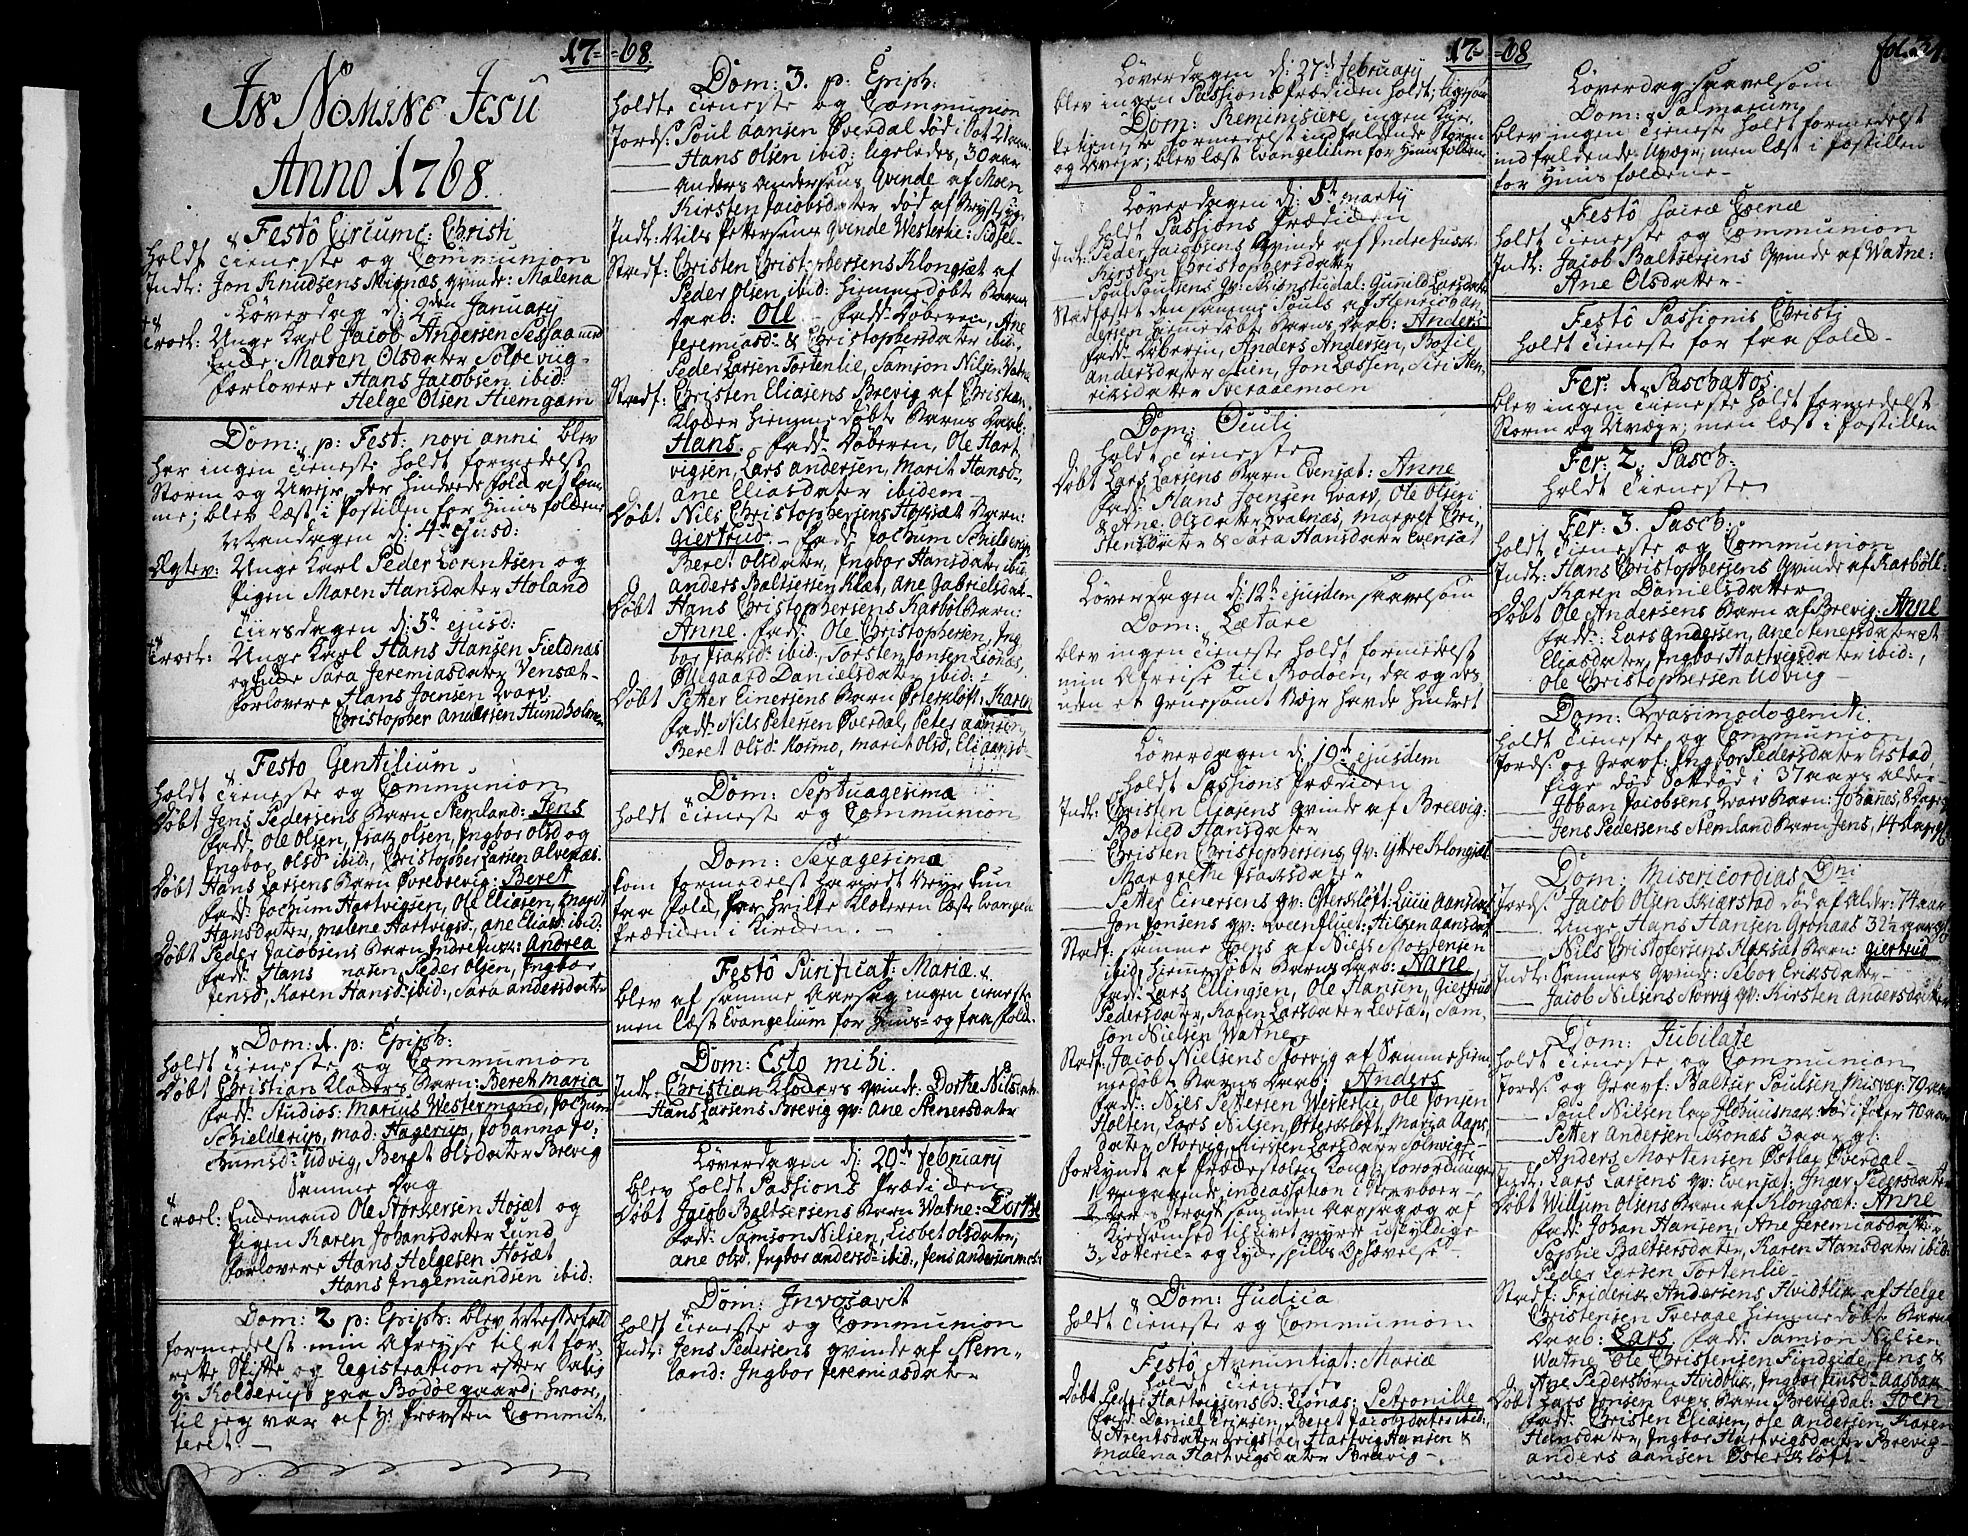 17 - 68.
In Nomine Jesu
Anno 1768.
Festô Circumc: Christi
holdt Tieneste og Communion
Indt: Jon Knudsens Mignæs Qvinde: Malena
Løverdag d: 2den January
Troel: Unge Karl Jacob Andersen Sessaa med
Enke Maren Olsdater Solbevug-
forlovere Hans Jacobsen ibid:
Helge Olsen Hiemgam
Dom: p: Fest: novi anni blev
her ingen Tieneste holdt formedelst
Storm og Uvejr, der hindrede folk at kom-
me; blev læst i Postillen for Huus folkene
Mandagen d: 4de ejusd:
Ægtev: Unge Karl Peder Lorentsen og
Pigen Maren Hansdater Holand
Tiirsdagen d: 5te ejusd:
Troel: Unge Karl Hans Hansen Fieldnæs
og Enke Sara Jeremiasdater Vensæt-
forlovere Hans Joensen Kvarv
Christopher Andersen Hundholmen
Festo Gentilium
holdt Tieneste og Communion
Døbt Jens Pedersens Barn Nemland: Jens
fadd: Ole Olsen, Isak Olsen, Ingbor Olsd og
Ingbor Olsd ibid:, Christopher Larsen Alvenæs.
Døbt Hans Larsens Barn Øvrebrevig: Beret
fadd: Jochum Hartvigsen, Ole Eliasen, Marit
Hansdater, Malene Hartvigsd:, Ane Eliasd: ibid:
Døbt Peder Jacobsens Barn Indrefusk: Andrea
fadd: Hans Peder Olsen, Ingbor
Jensd:, Karen Hansd: ibid:, Sara Andersdater
Dom: 1. p: Epiph:
holdt Tieneste og Communion
Døbt Christian Kloders Barn: Beret Maria
fadd: Studios: Marius Westermand, Jochum
Schielderup, Mad: Hagerup, Johanna Jo-
chumsd: Udvig, Beret Olsdater Brevig
Samme Dag
Troel: Enkemand Ole Storkersen Hosæt og
Pigen Karen Johansdater Lund
forlovere Hans Helgesen Hosæt
Hans Ingemundsen ibid:
Dom: 2 p: Epiph: blev Messefald
formedelst min Afreyse til at for-
rette Skifte og Registration efter Salig
Hr Kolderup paa Bodøegaard; hvor-
til jeg var af Hr Provsten Commit-
teret -
Dom: 3. p: Epiph:
holdt Tieneste og Communion
Jords: Poul Aansen Øverdal død i Pot 21 aar
Hans Olsen ibid: ligeledes, 30 aar
Anders Andersens Qvinde af Moen
Kirsten Jacobsdater, død af Bryst syge
Indt: Nils Pettersens Qvinde Westerlie: Sidsel-
Stadf: Christen Christophersens Klongsæt af
Peder Olsen ibid: hiemmedøbte Barns
Daab: Ole - fadd: Døberen, Ane
Jeremiasd: & Christophersdater ibid:,
Peder Larsen Tortenlie, Samson Nilsen Watne
Stadf: Christen Eliasens Brevig af Christian
Kloder hiemmedøbte Barns Daab:
Hans. fadd: Døberen, Ole Hart-
vigsen, Lars Andersen, Marit Hansd-,
Ane Eliasdater ibidem-
Døbt Nils Christophersens Hoksæt Barn:
Giertrud. - fadd: Jochum Schilderup
Beret Olsdater, Ingbor Hansdater ibid
Anders Baltsersen Klæt, Ane Gabrielsdat-
Døbt Hans Christophersens Karbøl Barn:
Anne. fadd: Ole Christophersen, Ing-
bor Isaksd: ibid:, Torsten Jonsen Lionæs,
Ollegaard Danielsdater ibid:
Døbt Petter Einersens Barn Østerkløft: Karen
fadd: Nils Petersen Øverdal, Peter Aansen,
Beret Olsd: Kosmo, Marit Olsd, Eli Aansd-
Dom: Septuagesima
holdt Tieneste og Communion
Dom: Sexagesima
kom formedelst haardt Vejr kun
faa folk, for hvilke Klokeren læste Evangeli
Prædiken i Kirken. -
Festô Purificat: Mariæ
blev af samme Aarsag ingen Tieneste
men læst Evangelium for Huus- og faa folk.
Dom: Esto mihi.
Indt: Christian Kloders Qvinde: Dorthe Nilsdater
Hans Larsens Brevig qv: Ane Stenersdater
Løverdagen d: 20de February
blev holdt Passions Prædiken
Døbt Jacob Baltsersens Barn Watne: Dorthe
fadd: Samson Nilsen, Lisbet Olsdater,
Ane Olsd. Ingbor Andersd: ibid:, Jens Andersen
Dom: Invocavit
holdt Tieneste og Communion
Indt: Jens Pedersens Qvinde af Nem-
land: Ingbor Jeremiasdater
17 - 68
Løverdagen d: 27de February
blev ingen Passions Prædiken holdt; ligesom
Dom: Reminisiere, ingen Kir-
ketieneste formedelst indfaldende Storm
og Uvejr; blev læst Evangelium for Huus folkene
Løverdagen d: 5te Marty
holdt Passions Prædiken
Indt: Peder Jacobsens Qvinde af Indrefusk-
Kirsten Christophersdatter
Poul Poulsens qv: Skonstudal: Gunild Larsdater
Stadfæstet den samme Pouls af Henric An-
dersen hiemmedøbte Barns Daab: Anders
fadd: Døberen, Anders Andersen, Botil
Andersdater Lien, Jon Lassen, Siri Hen-
riksdater Sveraaemoen
Dom: Oculi
holdt Tieneste
Døbt Lars Larsens Barn Evensæt: Anne
fadd: Hans Joensen Kvarv, Ole Olsen
& Ane Olsdater Kvalnæs, Margret Chri-
stensdater & Sara Hansdater Evensæt
Løverdagen d: 12te ejusdem saavelsom
Dom: Lætare
blev ingen Tieneste holdt formedelst
min Afreise til Bodøen, da og des-
uden et gruesomt Vejr havde hindret
Løverdagen d: 19de ejusdem
holdt Passions Prædiken
Indt: Christen Eliasens Qvinde af Brevig:
Botild Hansdater
Christen Christophersens qv: Yttre Klongsæt
Margrethe Isaksdater
Petter Einersens qv: Østerkløft: Luci Aansdat
Jon Jonsens qv: Kvenfluet: Hilken Aansdat
Stadf: samme Joens af Niels Mortensen
ibid, hiemmedøbte Barns Daab: Aane
fadd: Lars Ellingsen, Ole Hansen, Giertrud
Pedersdater, Karen Larsdater Levsæt, Sam-
son Nielsen Watne
Stadf: Jacob Nielsens Storvig af Samme hiem-
medøbte Barns Daab: Anders
fadd: Nils Pettersen Westerlie, Ole Jonsen
Holten, Lars Nilsen, Østerkløft, Maria Aans-
dater Storvig, Kirsten Larsdater Solnvig
forkyndt af Prædestolen Kongl: forordninger
1. angagende indcassation i Stervboer -
2. Deres straf som uden Aarsag og af
Kiedsomhed til Livet myrde uskyldige
3. Lotterie- og Lykkespills Ophævelse -
Dom: Judica
holdt Tieneste og Communion
Festô Annuntiat: Mariæ
holdt Tieneste
Døbt Peder Hartvigsens B: Lionæs: Petronille
fadd: Daniel Erixsen, Beret Jacobsdater ibid:,
& Arentsdater, Hartvig Hansen &
Malena Hartvigsdater Brevig -
fol:
Løverdag saavelsom
Dom: Palmarum
blev ingen Tieneste holdt formedelst
indfaldende Uvejr; men læst i Postillen
for Huus folkene -
Festô sacræ Coenæ
holdt Tieneste og Communion
Indt: Jacob Baltsersens Qvinde af Watne:
Ane Olsdater-
Festô Passionis Christi
holdt Tieneste for faa folk-
Fer: 1. Paschatos.
blev ingen Tieneste holdt formedelst
Storm og Uvejr; men læst i Postillen
Fer: 2. Pasch:
holdt Tieneste
Fer: 3. Pasch:
holdt Tieneste og Communion
Indt: Hans Christophersens Qvinde af Karbøll:
Karen Danielsdatter
Døbt Ole Andersens Barn af Brevig: Anne
fadd: Lars Andersen, Ane Stenersdater et
Eliasdater, Ingbor Hartvigsdater ibid:,
Ole Christophersen Udvug -
Dom: Qvasimodogeniti.
holdt Tieneste og Communion
Jords: og Gravf: Ingbor Pedersdater Erstad,
Pige død Sottdød i 37 aars alder-
Johan Jacobsens Kvarv Barn: Johanes, 8 Dages
Jens Pedersens Nemland Barn Jens, 14 dage gl
Dom: Misericordias Dni
Jords: Jacob Olsen Skiærstad død af Alder: 74 aar
Unge Hans Hansen Gronaas 32½ aar gl
Nils Christofersens Hoksæt Barn: Giertrud
Indt: Sammes Qvinde: Sibor Eriksdater-
Jacob Nilsens Storvig qv: Kirsten Andersdater
Dom: Jubilate
holdt Tieneste og Communion
Jords: og Gravf: Baltser Poulsen Misvær: 70 aar
Poul Nilsen Lap død i feber 40 aar
Petter Andersen Skonas 3 aar gl:
Anders Mortensen Østlap Øverdal-
Indt: Lars Larsens qv: Evensæt: Inger Pedersdater
Døbt Willum Olsens Barn af Klongsæt: Anne
fadd: Johan Hansen, Ane Jeremiasdatter
Sophie Baltsersdater, Karen Hansdater ibid:
Peder Larsen Tortenlie-
Stadf: Friderik Andersens Hvidblik af Helge
Christensen Sveraae hiemmedøbte Barns
Daab: Lars fadd: Samson Nilsen
Watne, Ole Christensen Findeide, Jens &
Ane Pedersbørn Hvidblik, Ingbor Jensd: Aasbak
Døbt Lars Jonsen Laps Barn Brevigdal: Joen
fadd: Christen Eliasen, Ole Andersen, Karen
Hansdater, Ingbor Hartvigsdater Brevig-
Anders Aansen Østerkløft-